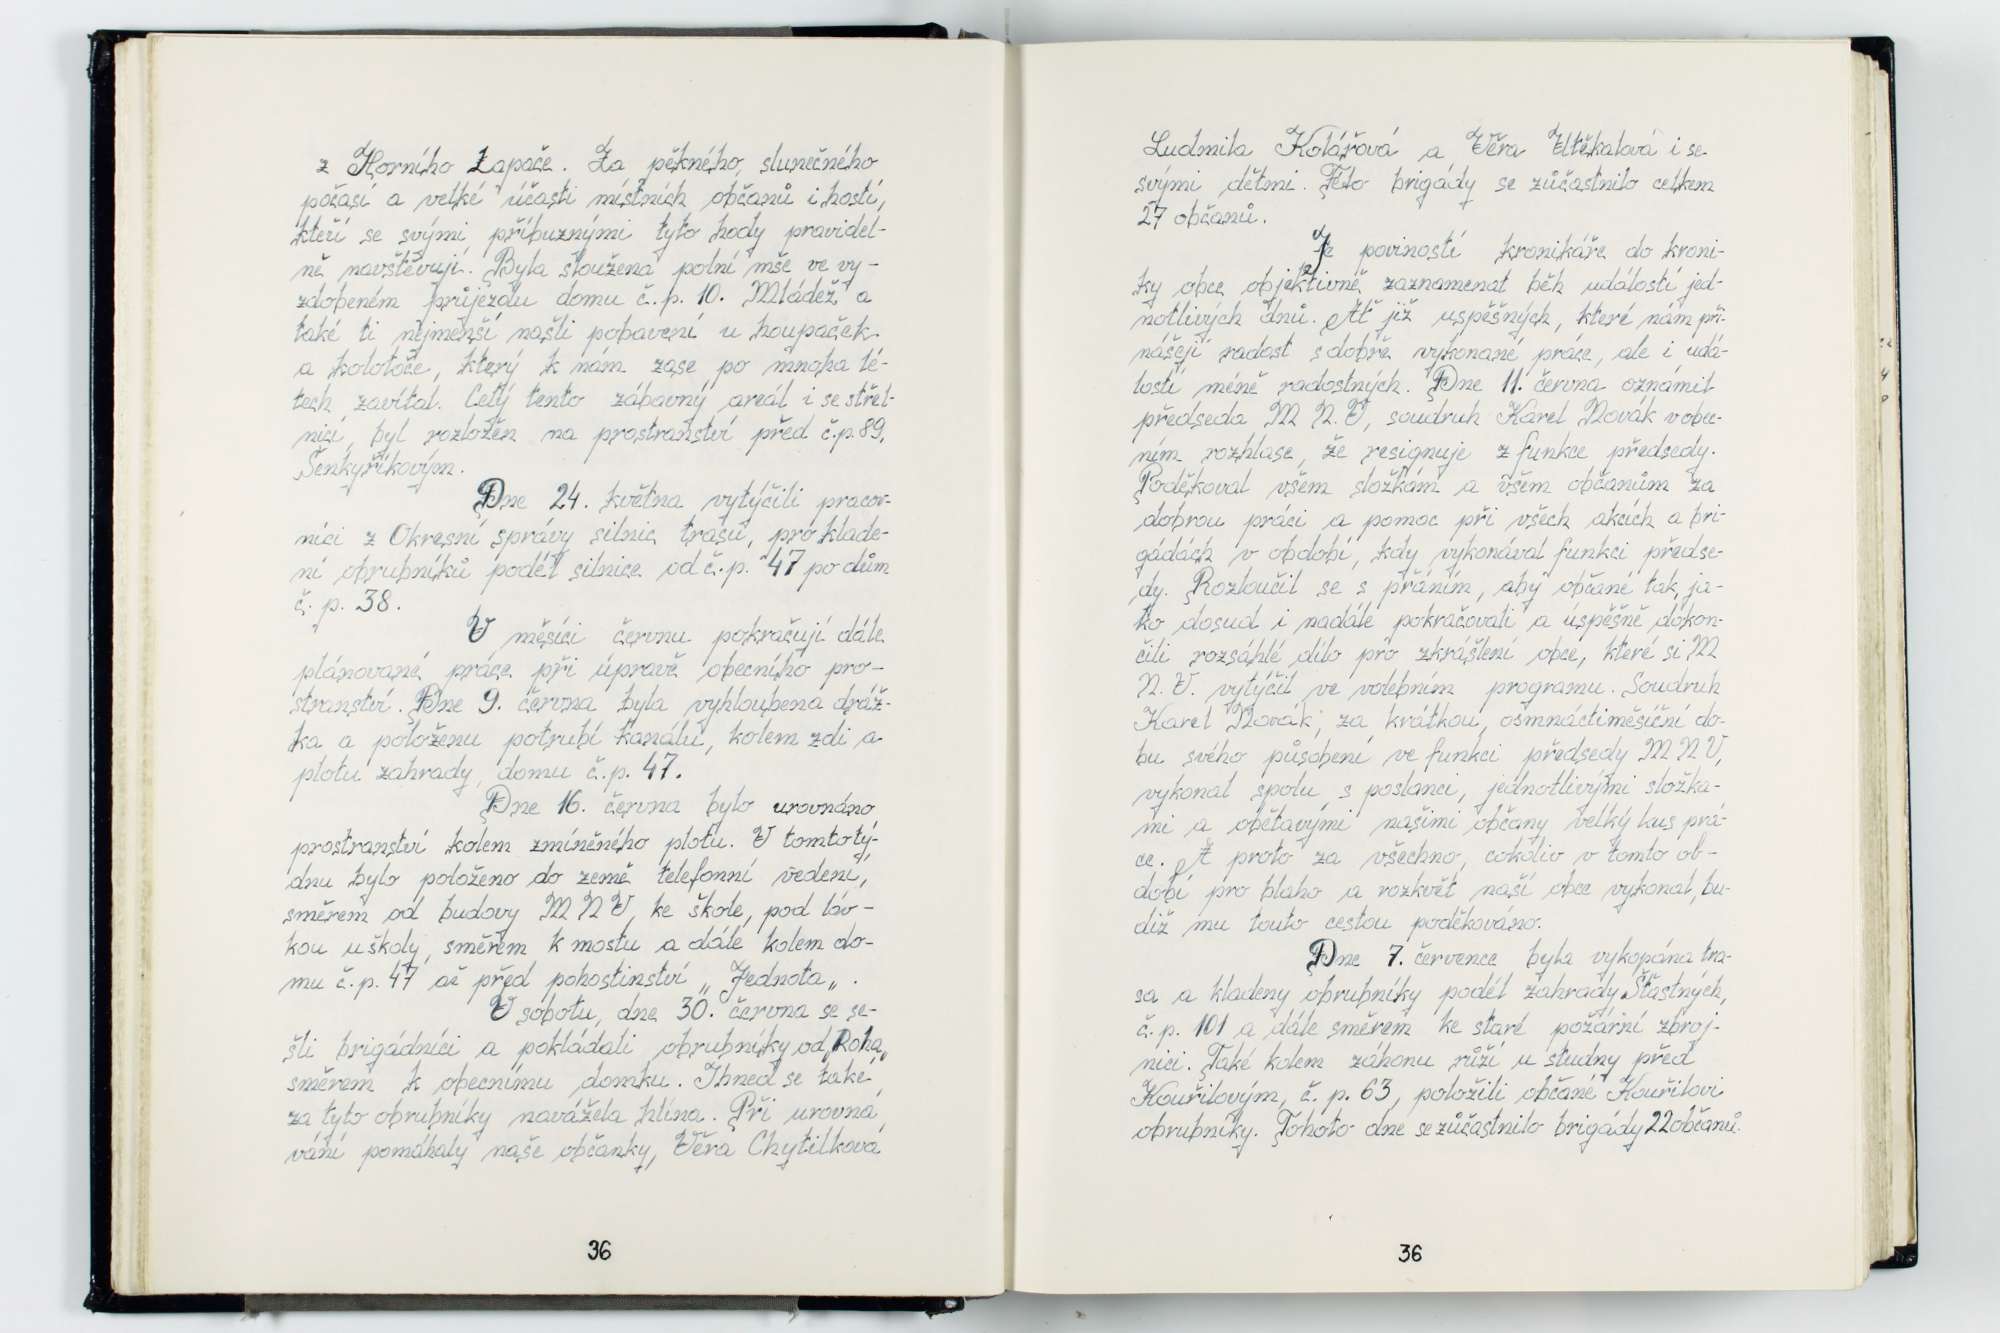 z Horního Lapače. Za pěkného, slunečného
počasí a velké účasti místních občanů i hostí,
kteří se svými příbuznými tyto hody pravidel-
ně navštěvují. Byla sloužena polní mše ve vy-
zdobeném průjezdu domu č.p. 10. Mládež a
také ti nejmenší našli pobavení u houpaček
a kolotoče, který k nám zase po mnoha lé-
tech zavítal. Celý tento zábavný areál i se střel-
nicí, byl rozložen na prostranství před č.p. 89,
Šenkyříkovým.
Dne 24. května vytýčili pracov-
níci z Okresní správy silnic trasu, pro klade-
ní obrubníků podél silnice od č.p. 47 po dům
č. p. 38.
V měsíci červnu pokračují dále
plánované práce při úpravě obecního pro-
stranství. Dne 9. června byla vyhloubena dráž-
ka a položenu potrubí kanálu, kolem zdi a
plotu zahrady, domu č.p. 47.
Dne 16. června bylo urovnáno
prostranství kolem zmíněného plotu. V tomto tý-
dnu bylo položeno do země telefonní vedení,
směrem od budovy MNV, ke škole, pod láv-
kou u školy, směrem k mostu a dále kolem do-
mu č.p. 47 až před pohostinství „Jednota„.
V sobotu, dne 30. června se se-
šli brigádníci a pokládali obrubníky od „Roha„
směrem k obecnímu domku. Ihned se také
za tyto obrubníky navážela hlína. Při urovná
vání pomáhaly naše občanky, Věra Chytilková
36
Ludmila Kolářová a Věra Utěkalová i se
svými dětmi. Této brigády se zůčastnilo celkem
27 občanů.
Je povinností kronikáře do kroni-
ky obce objektivně zaznamenat běh událostí jed-
notlivých dnů. Ať již uspěšných, které nám při-
nášejí radost s dobře vykonané práce, ale i udá-
lostí méně radostných. Dne 11. června oznámil
předseda M N.V, soudruh Karel Novák v obec-
ním rozhlase, že resignuje z funkce předsedy.
Poděkoval všem složkám a všem občanům za
dobrou práci a pomoc při všech akcích a bri-
gádách v období, kdy vykonával funkci předse-
dy. Rozloučil se s přáním, aby občané tak, ja-
ko dosud i nadále pokračovali a úspěšně dokon-
čili rozsáhlé dílo pro zkrášlení obce, které si M
N.V. vytýčil ve volebním programu. Soudruh
Karel Novák, za krátkou, osmnáctiměsíční do-
bu svého působení ve funkci předsedy MNV,
vykonal spolu s poslanci, jednotlivými složka-
mi a obětavými našimi občany velký kus prá-
ce. A proto za všechno, cokoliv v tomto ob-
dobí pro blaho a rozkvět naší obce vykonal, bu-
diž mu touto cestou poděkováno.
Dne 7. července byla vykopána tra-
sa a kladeny obrubníky podél zahrady Šťastných,
č.p. 101 a dále směrem ke staré požární zbroj-
nici. Také kolem záhonu růží u studny před
Kouřilovým, č. p. 63, položili občané Kouřilovi
obrubníky. Tohoto dne se zůčastnilo brigády 22 občanů.
36